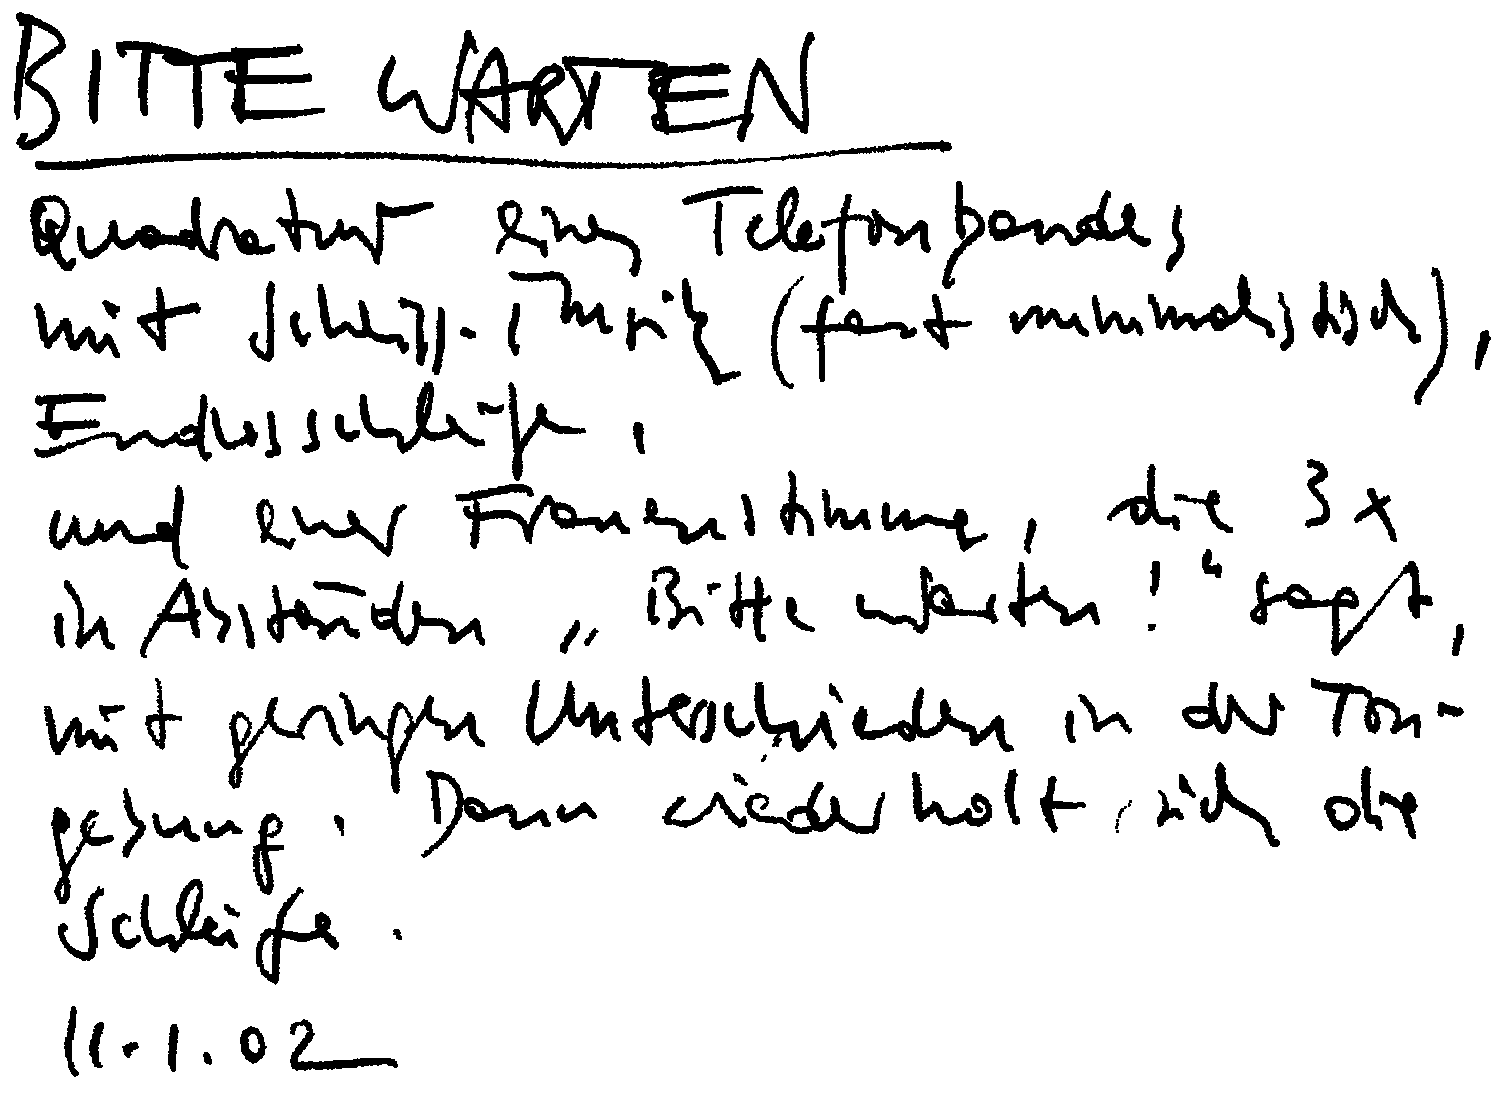 BITTE WARTEN
Quadratur eines Telefonbandes
mit Musik (fast minimalistisch),
Endlosschleife,
und einer Frauenstimme, die 3x
in Abständen „Bitte warten!“ sagt,
mit geringen Unterschieden in der Ton-
gebung. Dann wiederholt sich die
Schleife.
11.1.02